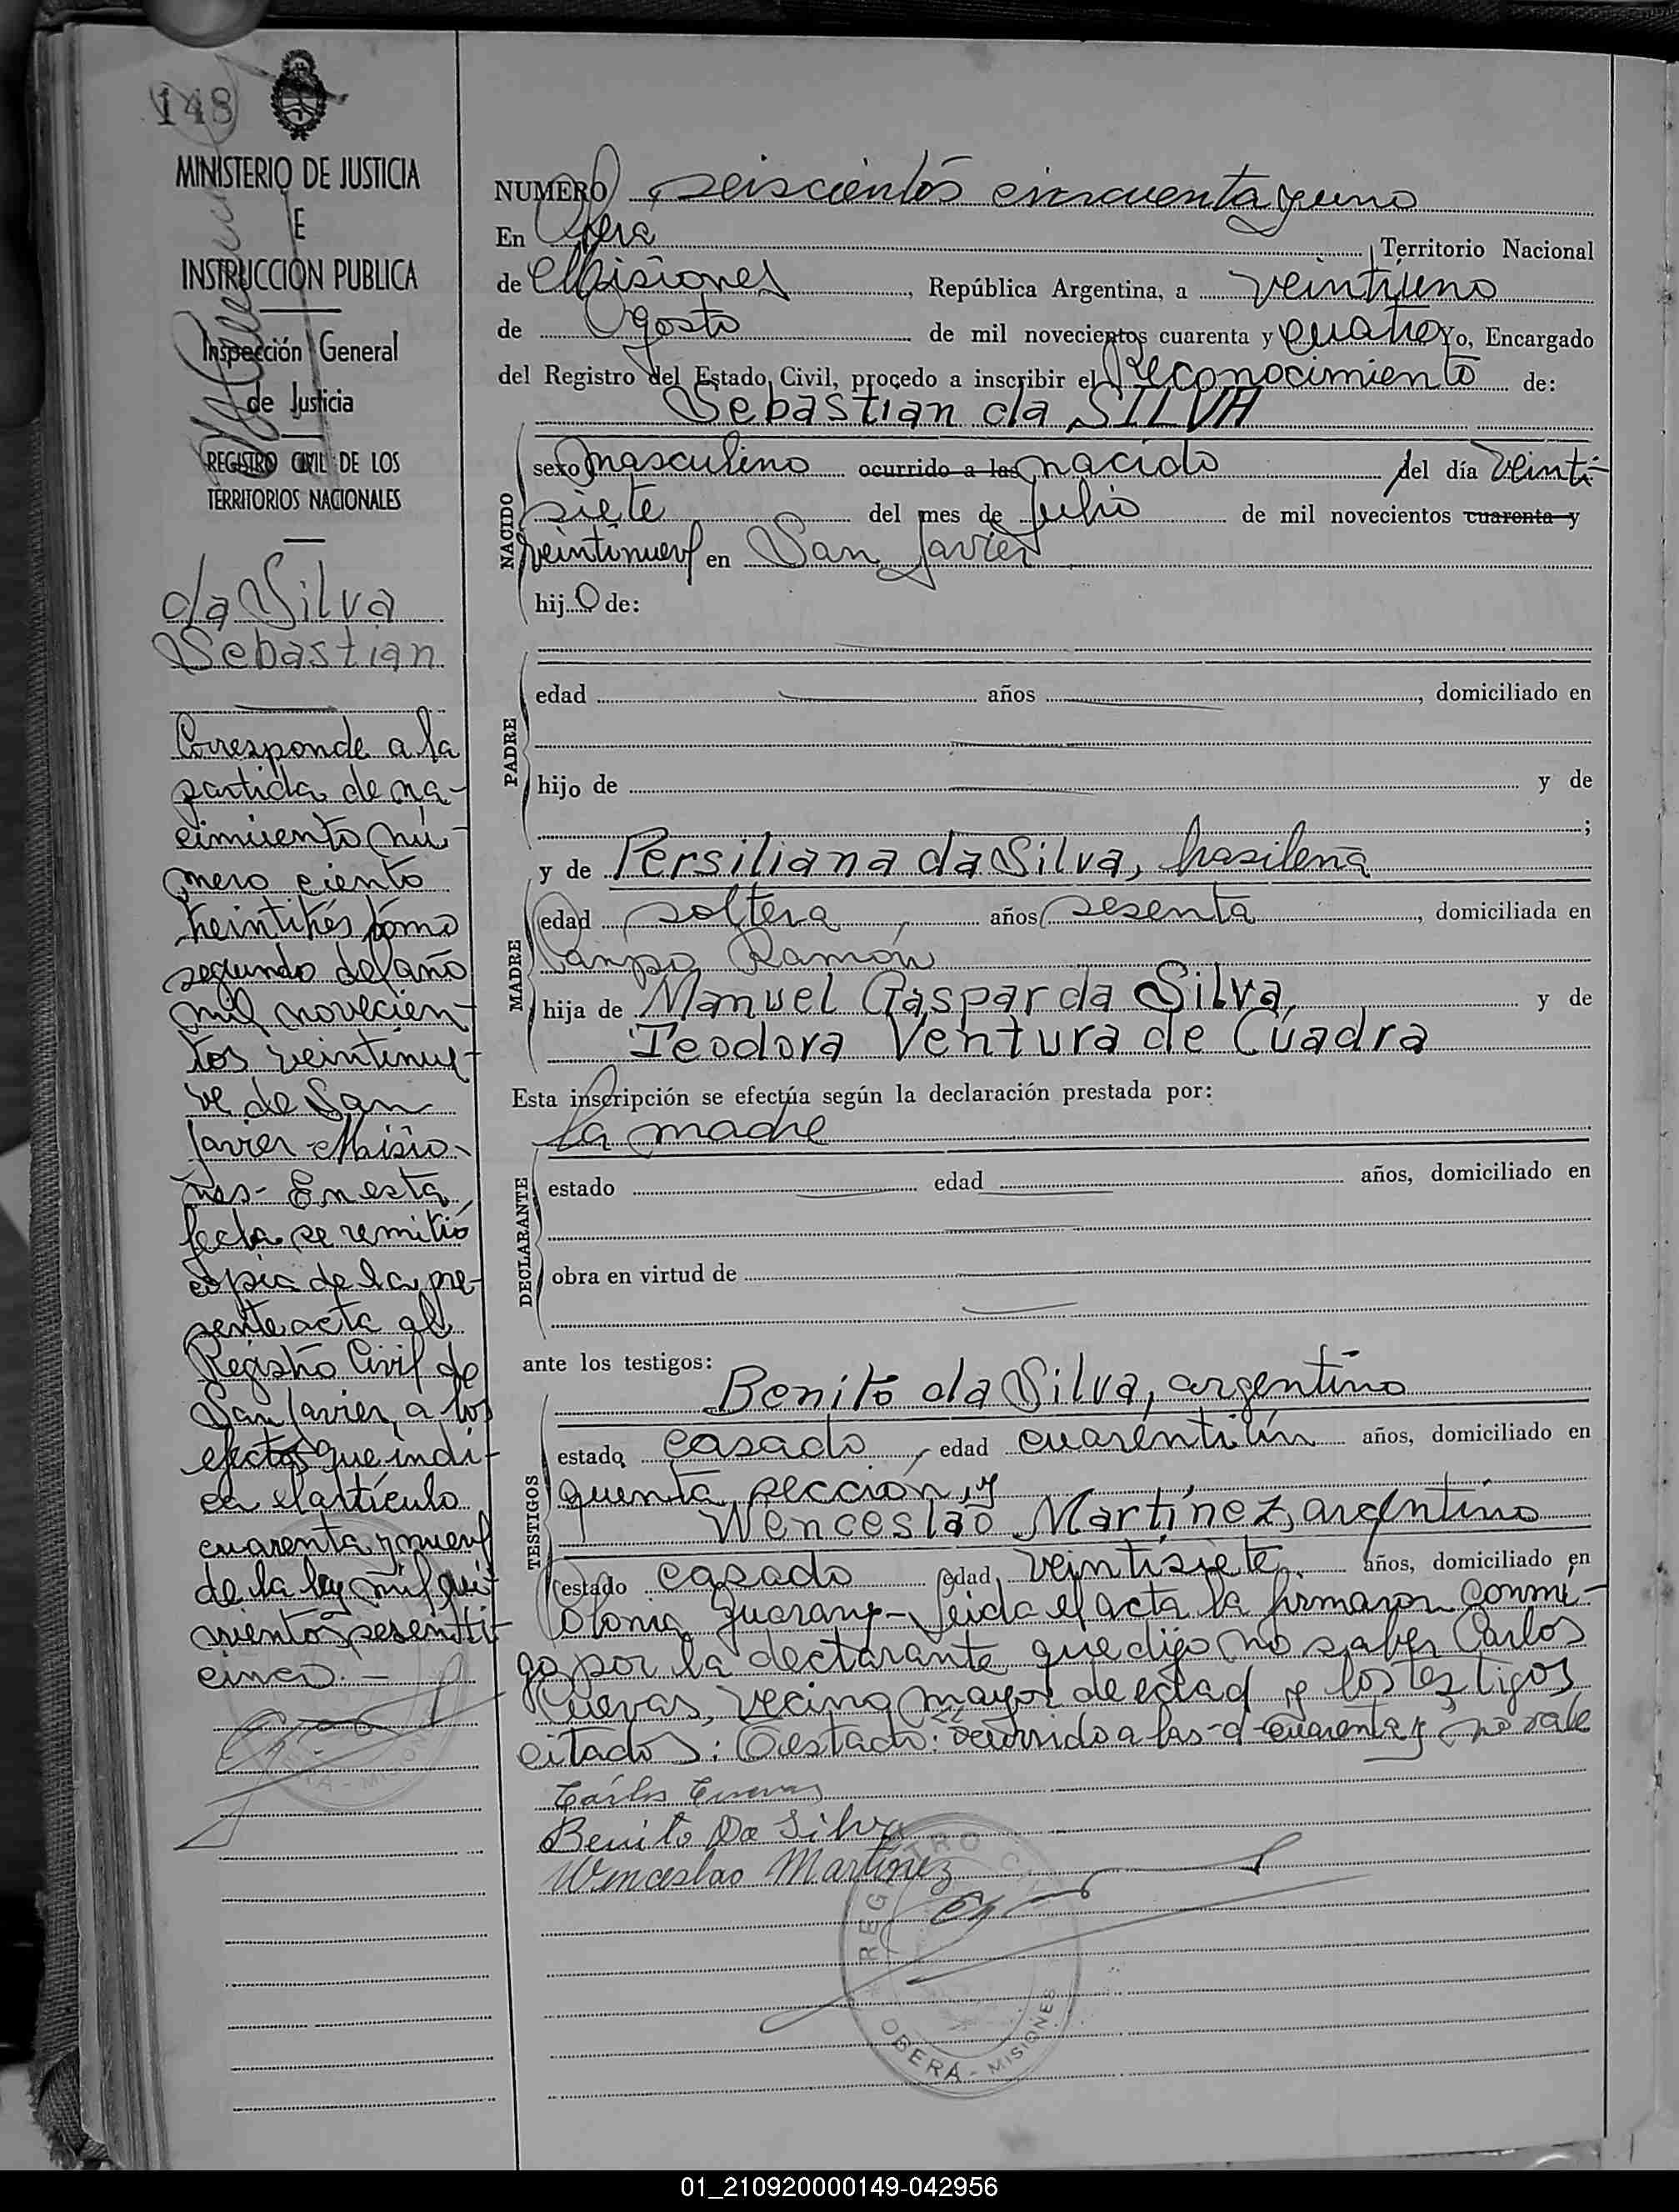 148
MINISTERIO DE JUSTICIA
E
INSTRUCCION PUBLICA
Inspección General
de Justicia
REGISTRO CIVIL DE LOS
TERRITORIOS NACIONALES
da Silva
Sebastian
Corresponde a la
partida de na-
cimiento nú-
mero ciento
treintitrés tomo
segundo del año
mil novecien-
tos veintinue-
ve de San
Javier-Misio-
nes- En esta
fecha se remitió
copia de la pre-
sente acta al
Registro Civil de
San Javier, a los
efectos que indi-
ca el artículo
cuarenta y nueve
de la ley mil qui-
nientos sesenti-
cinco.-
NUMERO seiscientos cincuenta y uno
En Obera Territorio Nacional
de Misiones, República Argentina, a veintiuno
de Agosto de mil novecientos cuarenta y cuatro Yo, Encargado
del Registro del Estado Civil, procedo a inscribir el Reconocimiento de:
Sebastian da SILVA
NACIDO
sexo masculino ocurrido a las nacido del día veinti-
siete del mes de julio de mil novecientos cuarenta y
veintinueve en San Javier
hijo de:
PADRE
edad años , domiciliado en
hijo de y de
;
MADRE
y de Persiliana da Silva, brasilena
edad soltera, años sesenta, domiciliada en
Campo Ramón
hija de Manuel Gaspar da Silva, y de
Teodora Ventura de Cuadra
Esta inscripción se efectúa según la declaración prestada por:
la madre
DECLARANTE
estado edad años, domiciliado en
obra en virtud de
ante los testigos:
TESTIGOS
Benito da Silva, argentino
estado casado, edad cuarentiún años, domiciliado en
quenta sección, y
Wenceslao Martínez, argentino
estado casado edad veintisiete años, domiciliado en
Colonia Guarany- Leida el acta la firmaron conmi-
go por la declarante que dijo no saber Carlos
Cuevas, vecino mayor de edad y los testigos
citados: Testado: ocurrido a las-d-cuarenta y no vale
Carlos Cuevas
Benito Da Silva
Wenceslao Martínez
REGISTRO C
OBERÁ - MISIONES
01_210920000149-042956